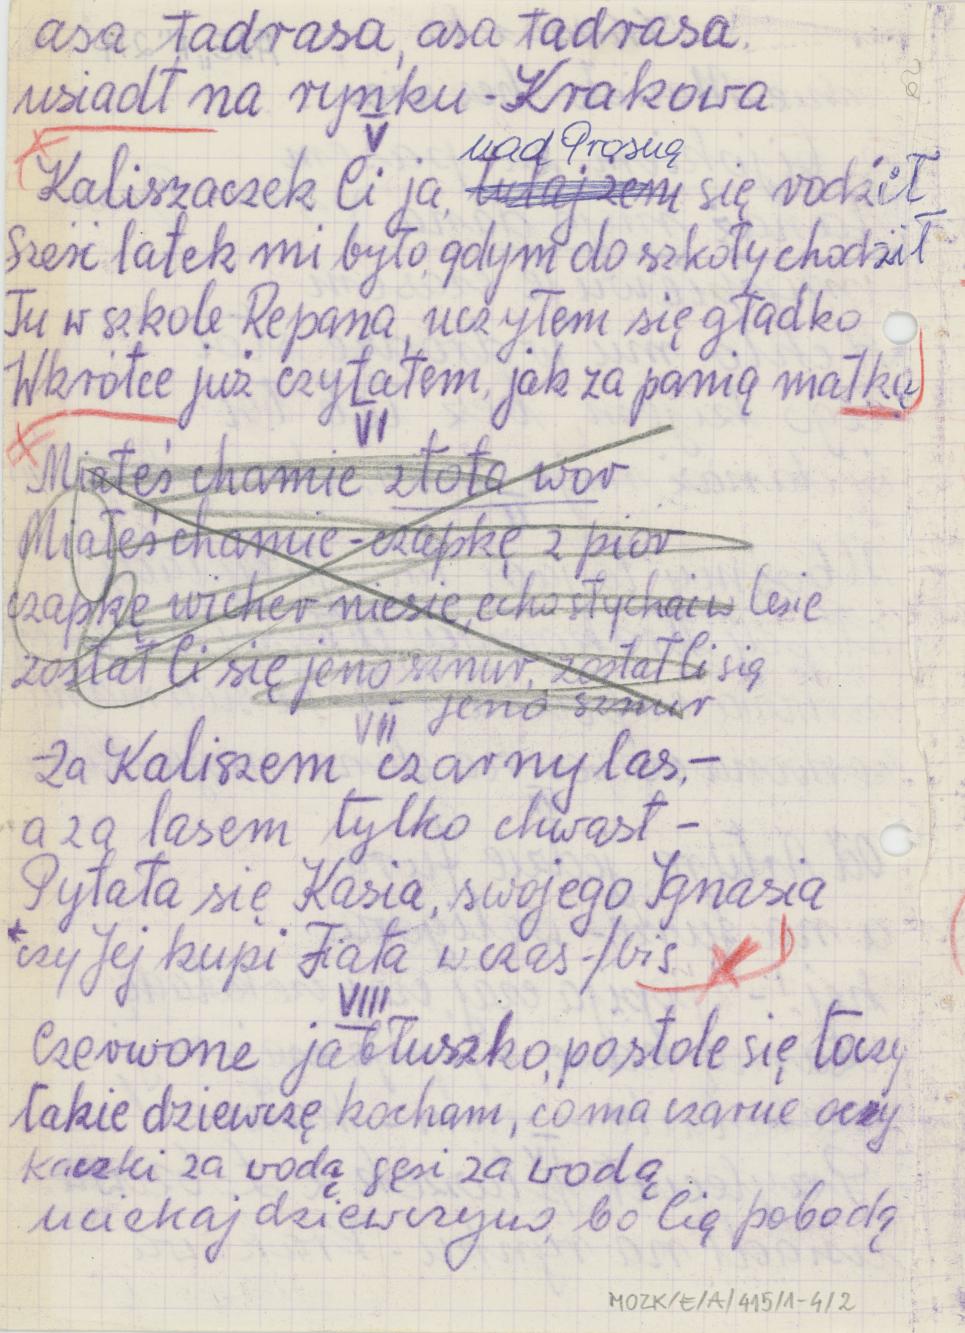 asa tadrasa, asa tadrasa.
usiadł na rynku Krakowa
V
nad Prosną
Kaliszaczek Ci ja tutaj żem się rodził
Sześć latek mi było gdym do szkoły chodził
Tu w szkole Repana, uczyłem się gładko
Wkrótce już czytałem, jak za panią matką
VI
Miałeś chamie złota wór
Miałeś chamie - czapkę z piór
czapkę wicher niesie, echo słychać w lesie
został Ci się jeno sznur, został Ci się
jeno sznur
VII
Za Kaliszem czarny las, -
a za lasem tylko chwast -
Pytała się Kasia, swojego Ignasia
czy Jej kupi Fiata w czas - /bis
VIII
Czerwone jabłuszko, po stole się toczy
takie dziewczę kocham, co ma czarne oczy
kaczki za wodą gęsi za wodą
uciekaj dziewczyno bo Cię pobodą
MOZK/E/A/415/1-4/2